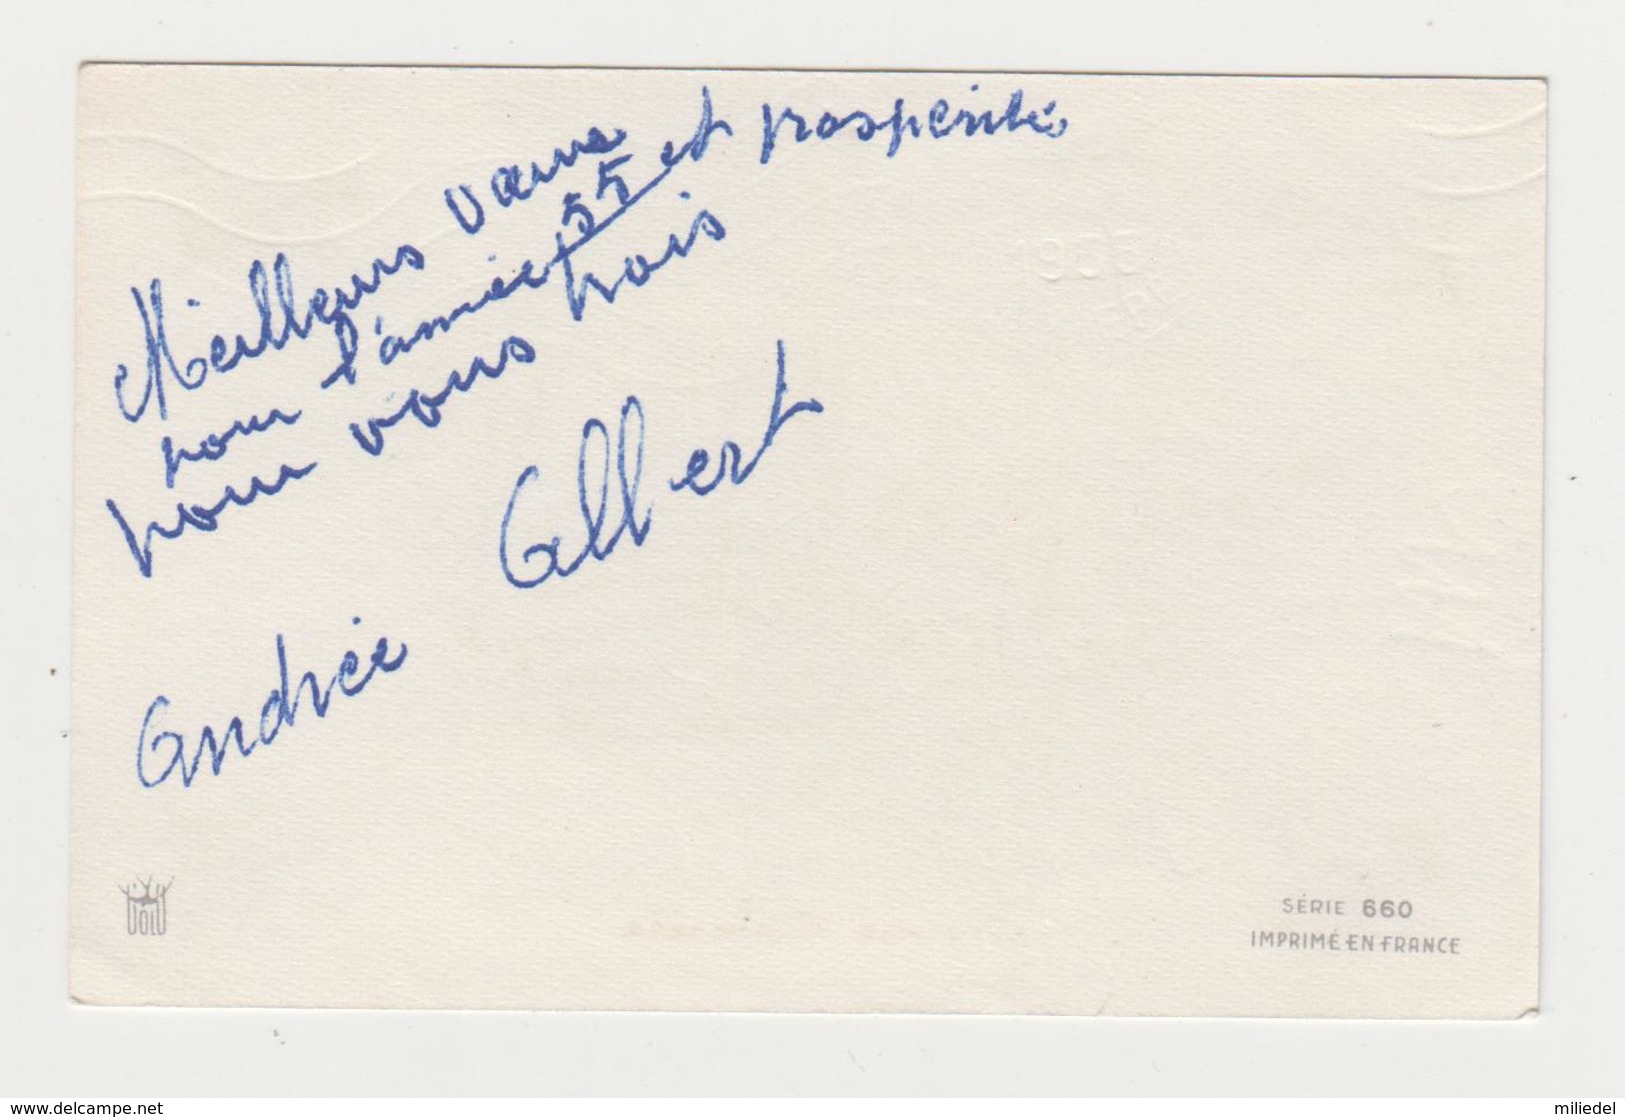 Meilleurs vœux
pour l'année 55 et prosperité
pour vous trois
Albert
Andrée
SÉRIE 660
IMPRIMÉ EN FRANCE
www.delcampe.net
miliedel